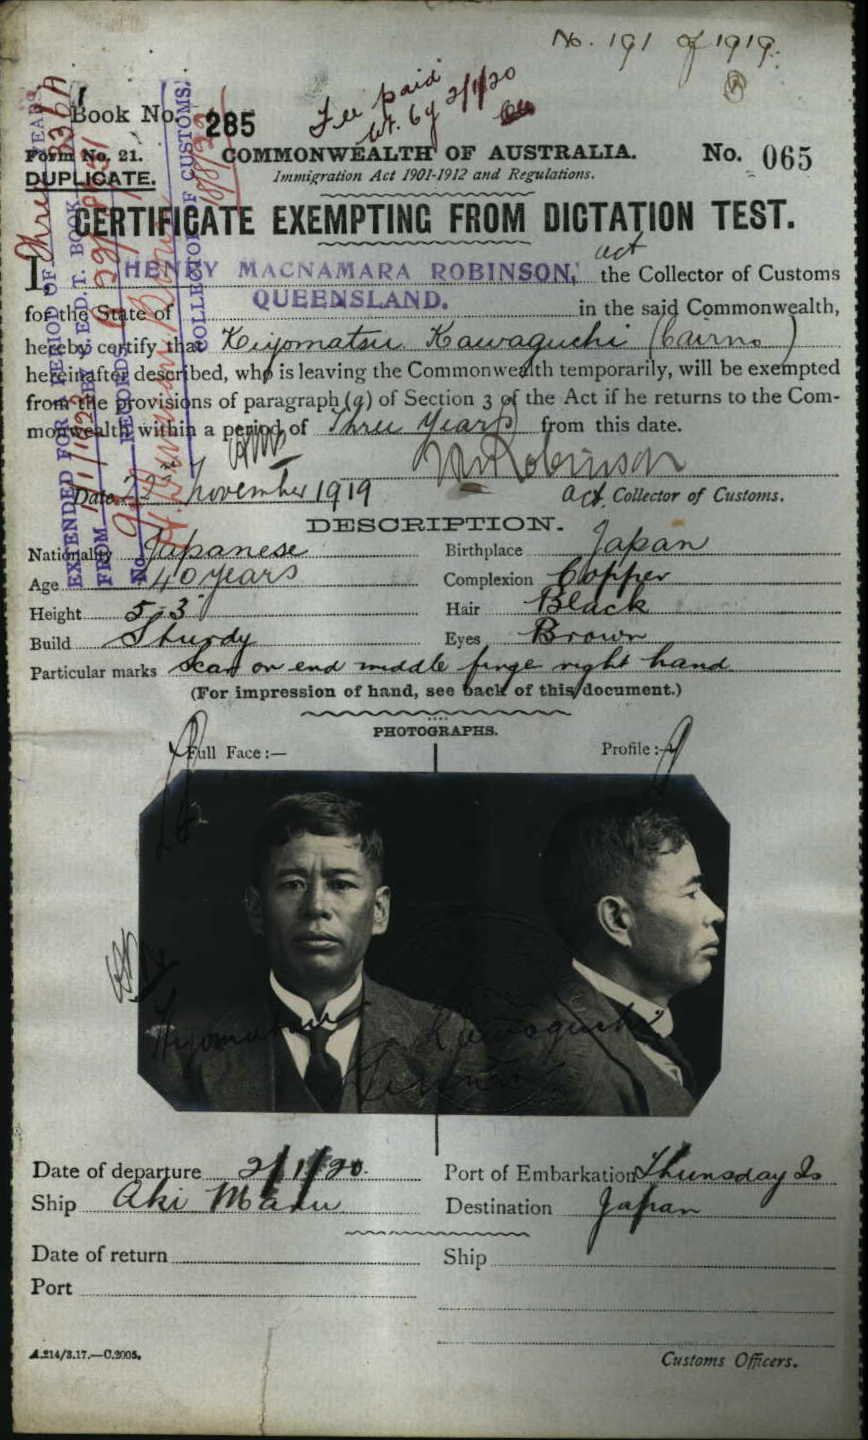 No. 191 of 1919.
Fee paid
2/1/20
Book No. 285
Form No. 21.
COMMONWEALTH OF AUSTRALIA.
No. 065
DUPLICATE.
Immigration Act 1901-1912 and Regulations.
CERTIFICATE EXEMPTING FROM DICTATION TEST.
act
I, HENRY MACNAMARA ROBINSON, the Collector of Customs
for the State of QUEENSLAND. in the said Commonwealth,
hereby certify that Kiyomatsu Kawaguchi (Cairns)
hereinafter described, who is leaving the Commonwealth temporarily, will be exempted
from the provisions of paragraph (a) of Section 3 of the Act if he returns to the Com-
monwealth within a period of Three Years from this date.
HMRobinson
Date 22nd November 1919
Act. Collector of Customs.
EXTENDED FOR A PERIOD OF Three YEARS
FROM
No.
RECORDS
COLLECTOR OF CUSTOMS.
DESCRIPTION.
Nationality Japanese
Birthplace Japan
Age 40 years
Complexion Copper
Height 5-3"
Hair Black
Build Sturdy
Eyes Brown
Particular marks scar on end middle finge right hand
(For impression of hand, see back of this document.)
PHOTOGRAPHS.
Full Face :—
Profile :—
Kiyomatsu Kawaguchi
Date of departure 2/1/20.
Port of Embarkation Thursday Is
Ship Aki Maru
Destination Japan
Date of return
Ship
Port
A.214/3.17.—C.2005.
Customs Officers.